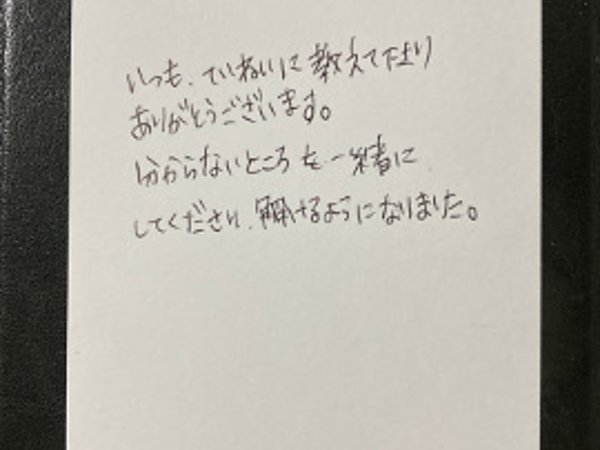 いつも、ていねいに教えて下さり
ありがとうございます。
分からないところを一緒に
してくださり、解けるようになりました。